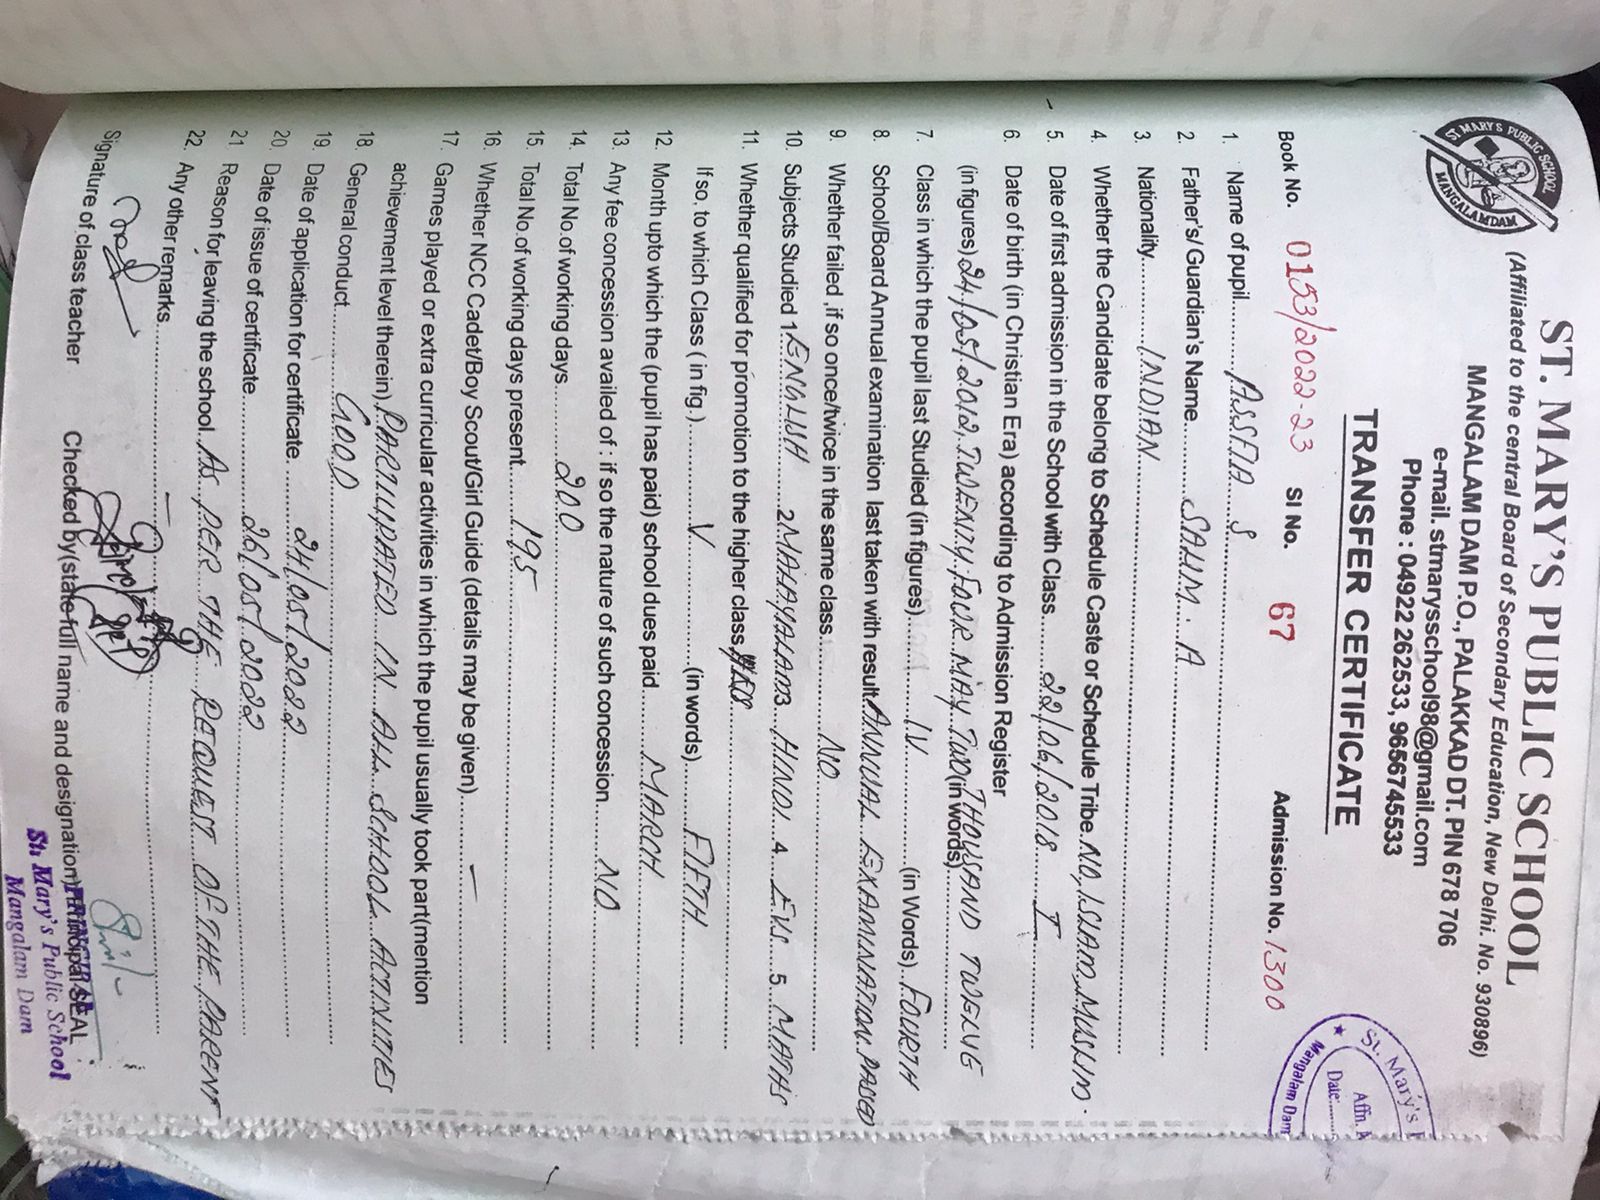 ST MARY'S PUBLIC SCHOOL
MANGALAMDAM
ST. MARY'S PUBLIC SCHOOL
(Affiliated to the central Board of Secondary Education, New Delhi. No. 930896)
MANGALAM DAM P.O., PALAKKAD DT. PIN 678 706
e-mail. stmarysschool98@gmail.com
Phone : 04922 262533, 9656745533
TRANSFER CERTIFICATE
St. Mary's P
Affn.
Date:
Mangalam Dam
Book No. 0153/2022-23 SI No. 67 Admission No. 1300
1. Name of pupil ASSFIA S
2. Father's/ Guardian's Name SALIM. A
3. Nationality INDIAN
4. Whether the Candidate belong to Schedule Caste or Schedule Tribe NO, ISLAM, MUSLIM.
5. Date of first admission in the School with Class 22/06/2018 I
6. Date of birth (in Christian Era) according to Admission Register
(in figures) 24/05/2012, TWENNY FOUR MAY TWO (in words) THOUSAND TWELVE
7. Class in which the pupil last Studied (in figures) IV (in Words) FOURTH
8. School/Board Annual examination last taken with result ANNUAL EXAMINATION PASSED
9. Whether failed ,if so once/twice in the same class: NO
10. Subjects Studied 1.ENGLISH 2 MALAYALAM 3 HINDI 4 EVS 5. MATHS
11. Whether qualified for promotion to the higher class YES
If so, to which Class ( in fig.) V (in words) FIFTH
12. Month upto which the (pupil has paid) school dues paid MARCH
13. Any fee concession availed of : if so the nature of such concession NO
14. Total No.of working days 200
15. Total No.of working days present 195
16. Whether NCC Cadet/Boy Scout/Girl Guide (details may be given) —
17. Games played or extra curricular activities in which the pupil usually took part(mention
achievement level therein) PARTICIPATED IN ALL SCHOOL ACTIVITIES
18. General conduct GOOD
19. Date of application for certificate 24/05/2022
20 Date of issue of certificate 26/05/2022
21 Reason for leaving the school AS PER THE REQUEST OF THE PARENT
22. Any other remarks —
Signature of class teacher Checked by(state full name and designation) Principal SEAL
PRINCIPAL
St. Mary's Public School
Mangalam Dam